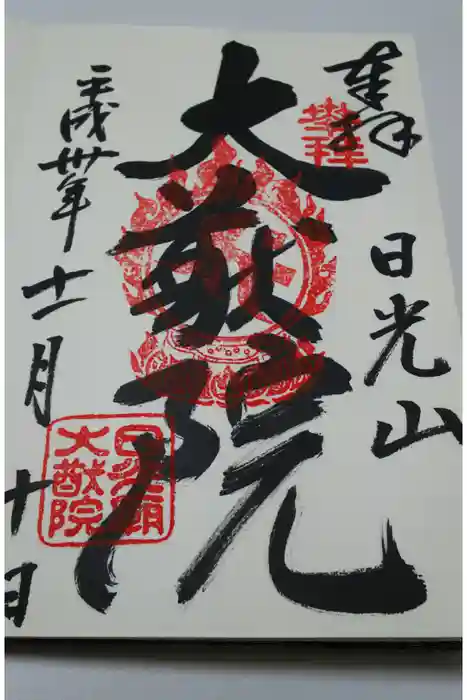 奉拝
日光山
大猷院
平成卅年十一月十日
奉拝
日光廟
大猷院